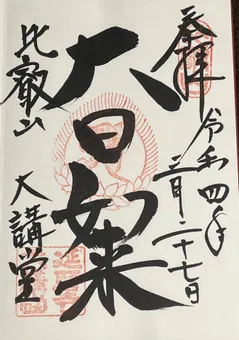 奉拝
令和四年
三月二十七日
大日如来
比叡山
大講堂